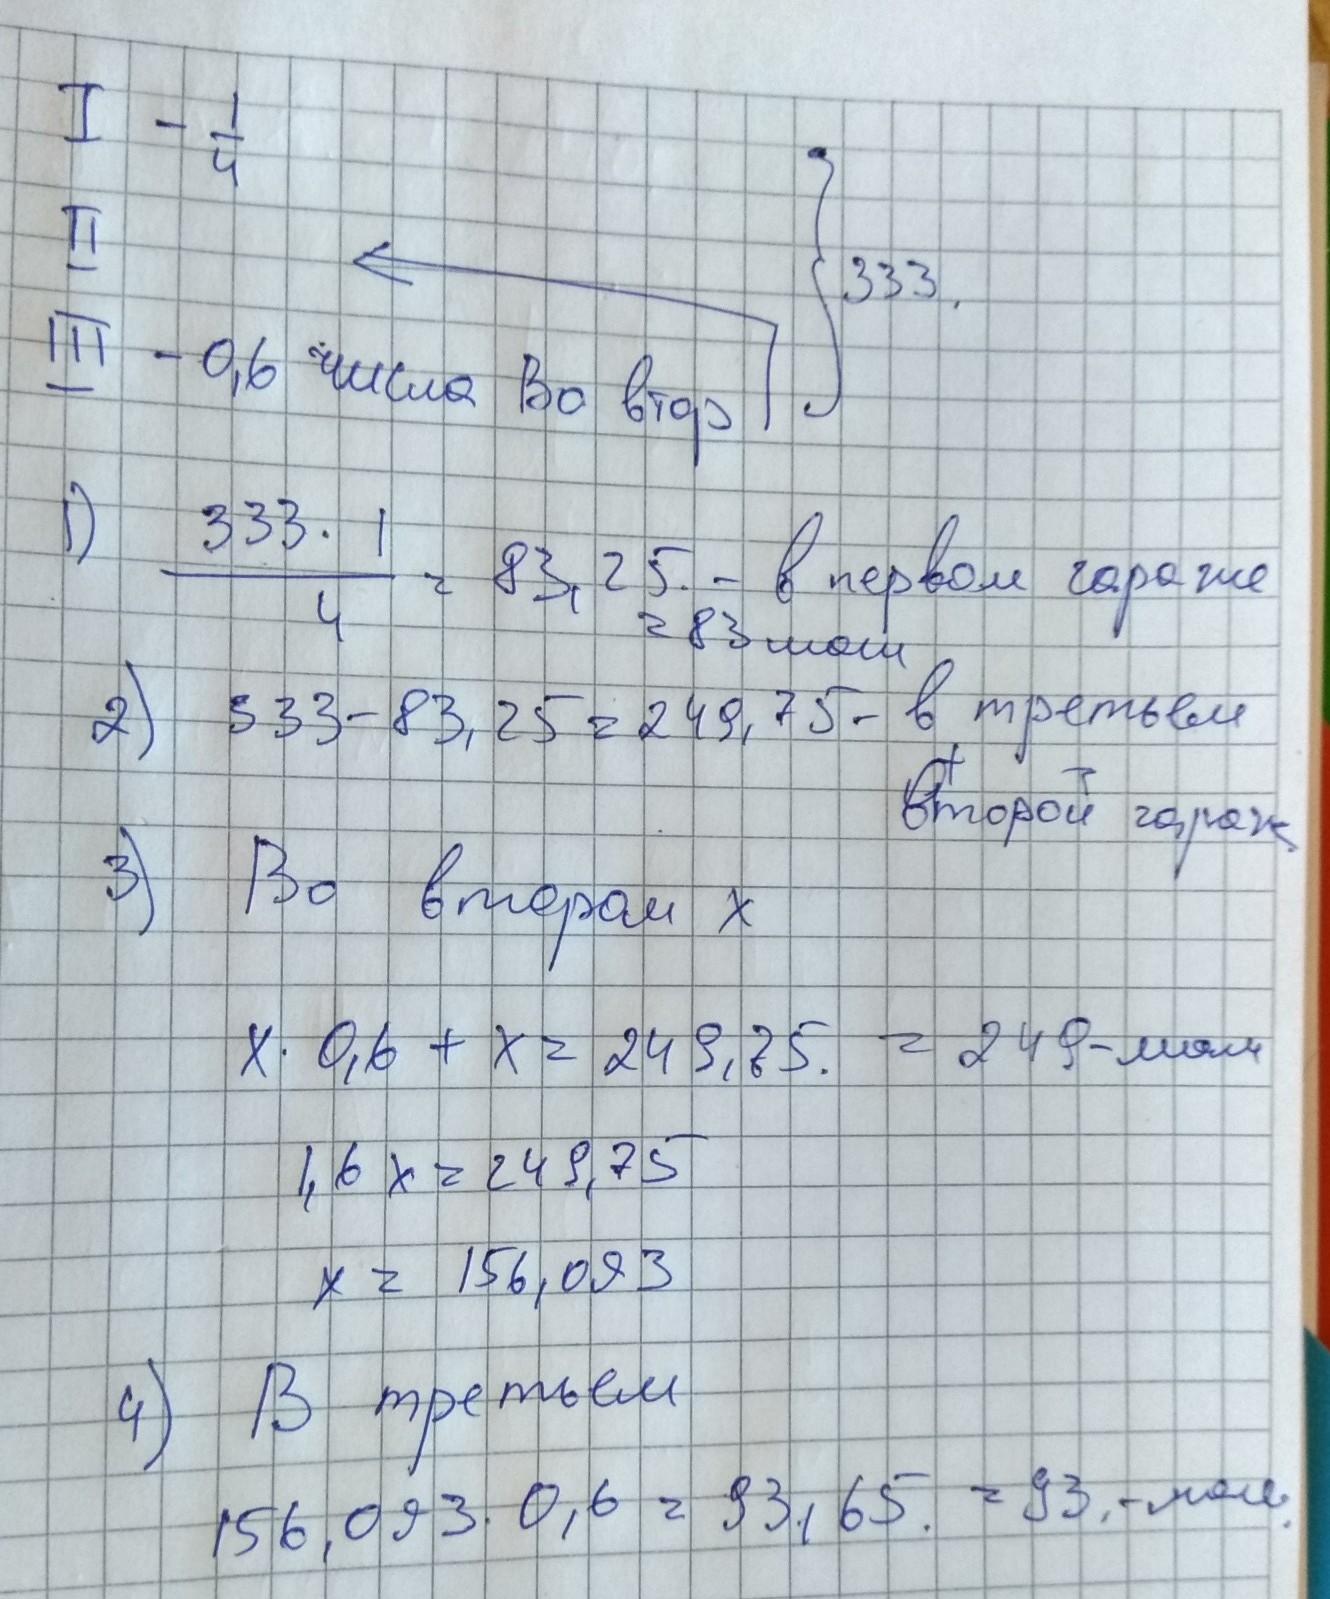 I - 1/4
II
III - 0,6 числа Во втор
333.
1) 333 · 1 / 4 = 83,25. - в первом гараже
= 83 маш
2) 333 - 83,25 = 249,75 - в третьем
+
второй гараж
3) Во втором x
x · 0,6 + x = 249,75. = 249 - маш
1,6 x = 249,75
x = 156,093
4) В третьем
156,093 · 0,6 = 93,65. = 93. - маш.